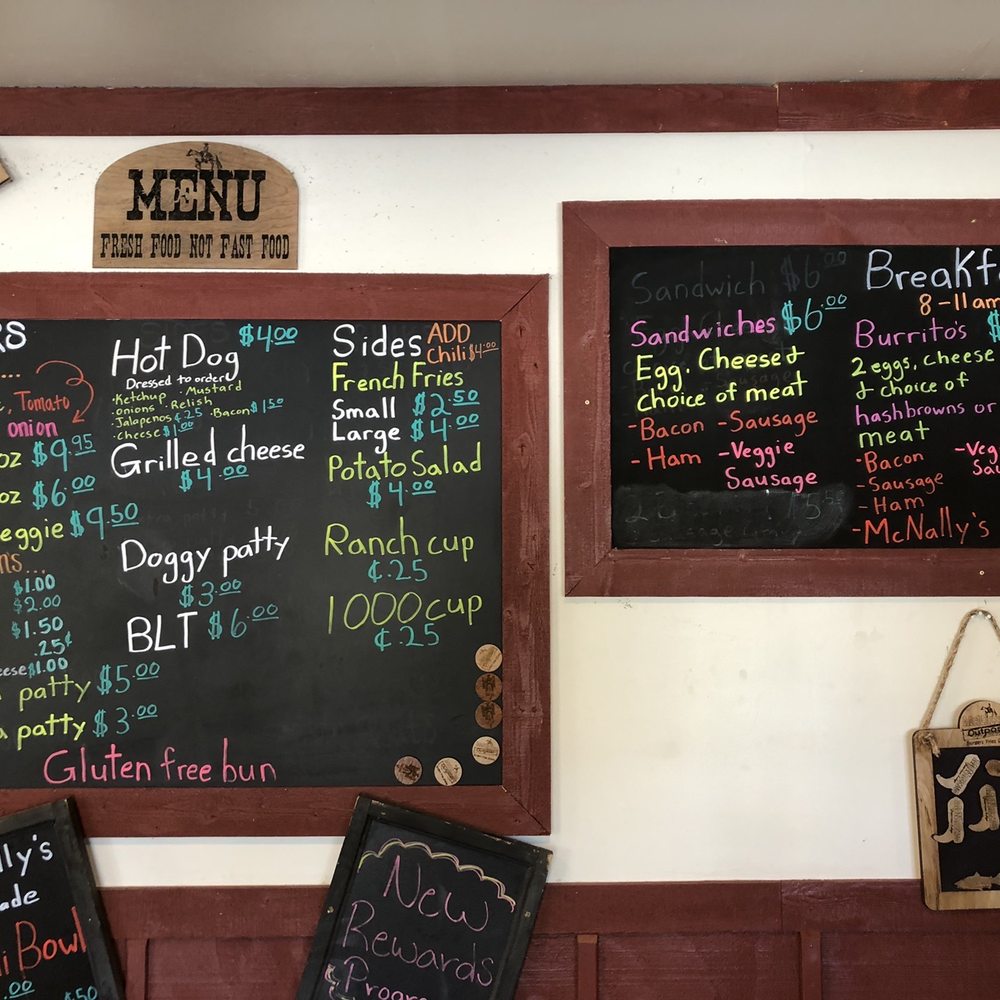 MENU
FRESH FOOD NOT FAST FOOD
RS
...
, Tomato
onion
oz $9.95
oz $6.00
eggie $9.50
ns...
$1.00
$2.00
$1.50
.25¢
eese $1.00
patty $5.00
a patty $3.00
Gluten free bun
Hot Dog $4.00
Dressed to order
·Ketchup ·Mustard
·onions ·Relish
·Jalapenos ¢.25 ·Bacon $1.50
·cheese $1.00
Grilled cheese
$4.00
Doggy patty
$3.00
BLT $6.00
Sides ADD
Chili $4.00
French Fries
Small $2.50
Large $4.00
Potato Salad
$4.00
Ranch cup
¢.25
1000 cup
¢.25
Sandwich $6.00
Sandwiches $6.00
Egg, Cheese &
choice of meat
-Bacon -Sausage
-Ham -Veggie
Sausage
Breakfa
8-11am
Burrito's $
2 eggs, cheese
& choice of
hashbrowns or
meat
-Bacon
-Sausage
-Ham
-Veg
Sau
-McNally's
lly's
ade
i Bowl
.00
$.50
New
Rewards
Progra
Outpos